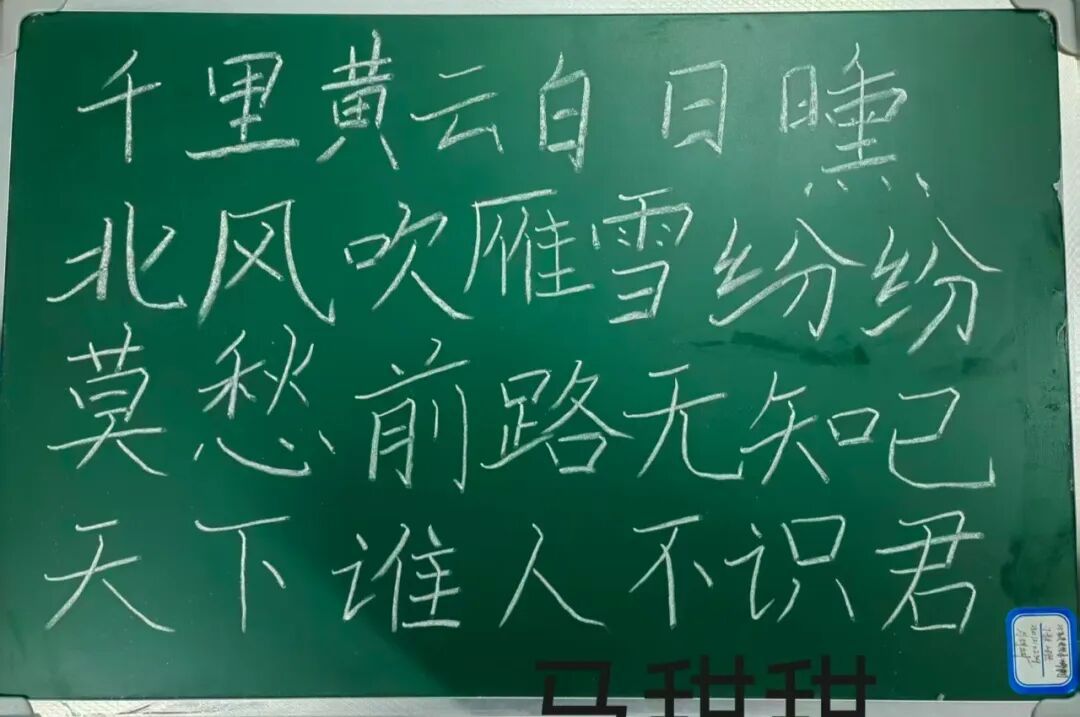 千里黄云白日曛
北风吹雁雪纷纷
莫愁前路无知己
天下谁人不识君
马甜甜